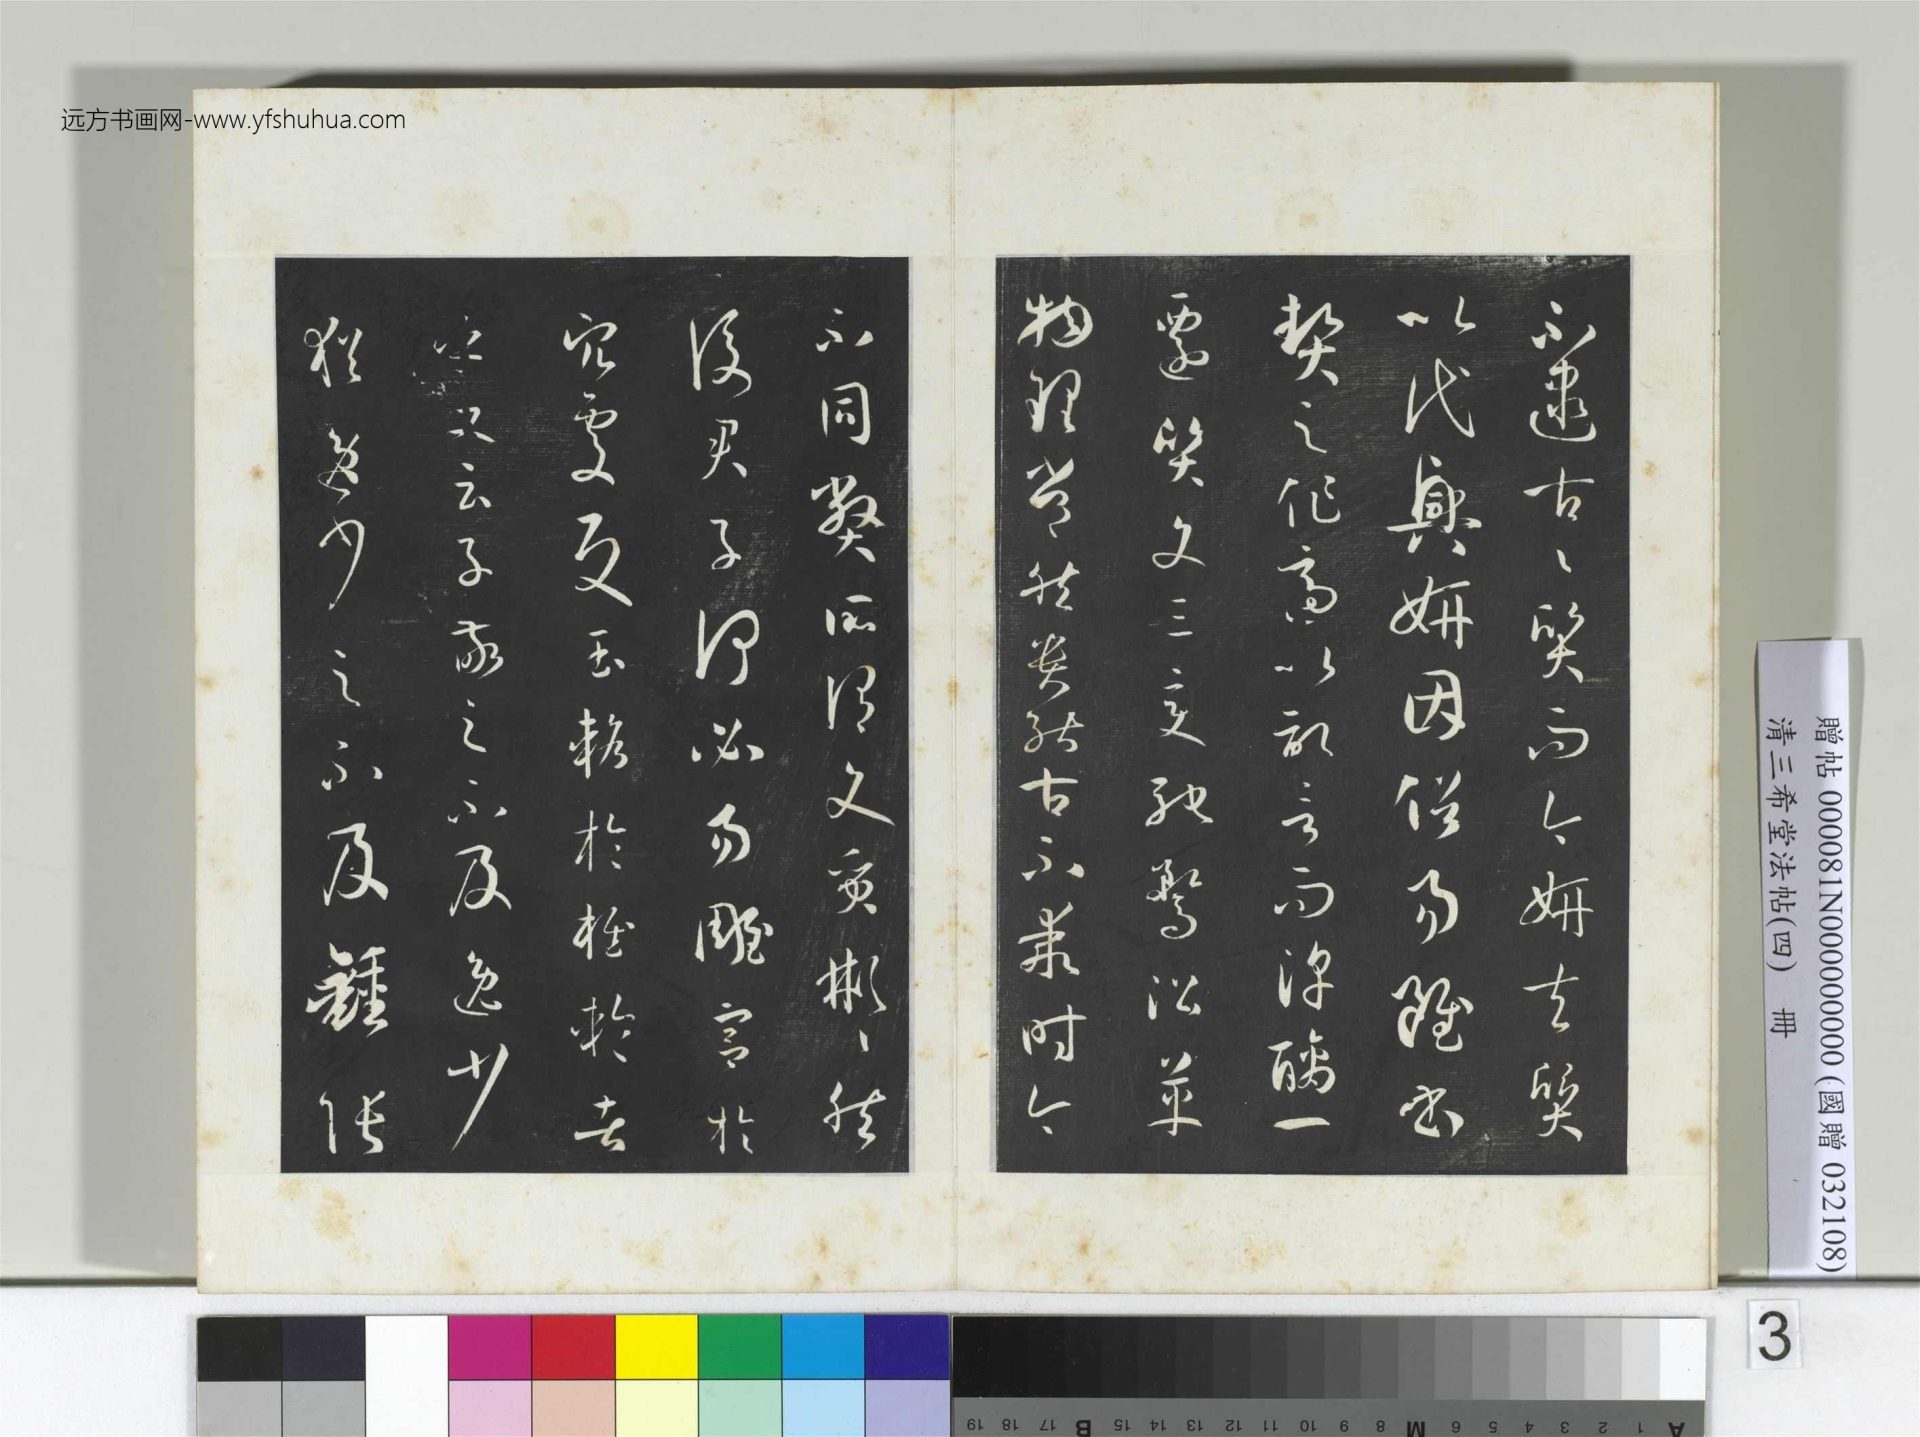 远方书画网-www.yfshuhua.com
不逮古々質而今妍夫質
以代興妍因俗易雖書
契之作適以記言而淳醨一
遷質文三變馳騖沿革
物理常然貴能古不乖時今
不同弊所謂文質彬々然
後君子何必易雕宮於
穴處反玉輅於椎輪者
乎又云子敬之不及逸少
猶逸少之不及鍾張
贈帖 000081N000000000 (國贈 032108)
清三希堂法帖(四) 冊
3
A 1 2 3 4 5 6 M 8 9 10 11 12 13 14 15 B 17 18 19